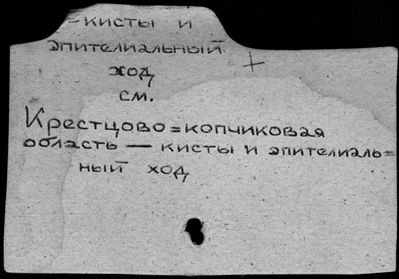 - кисты и
эпителиальный
ход
см.
Крестцово=копчиковая
область — кисты и эпителиаль=
ный ход